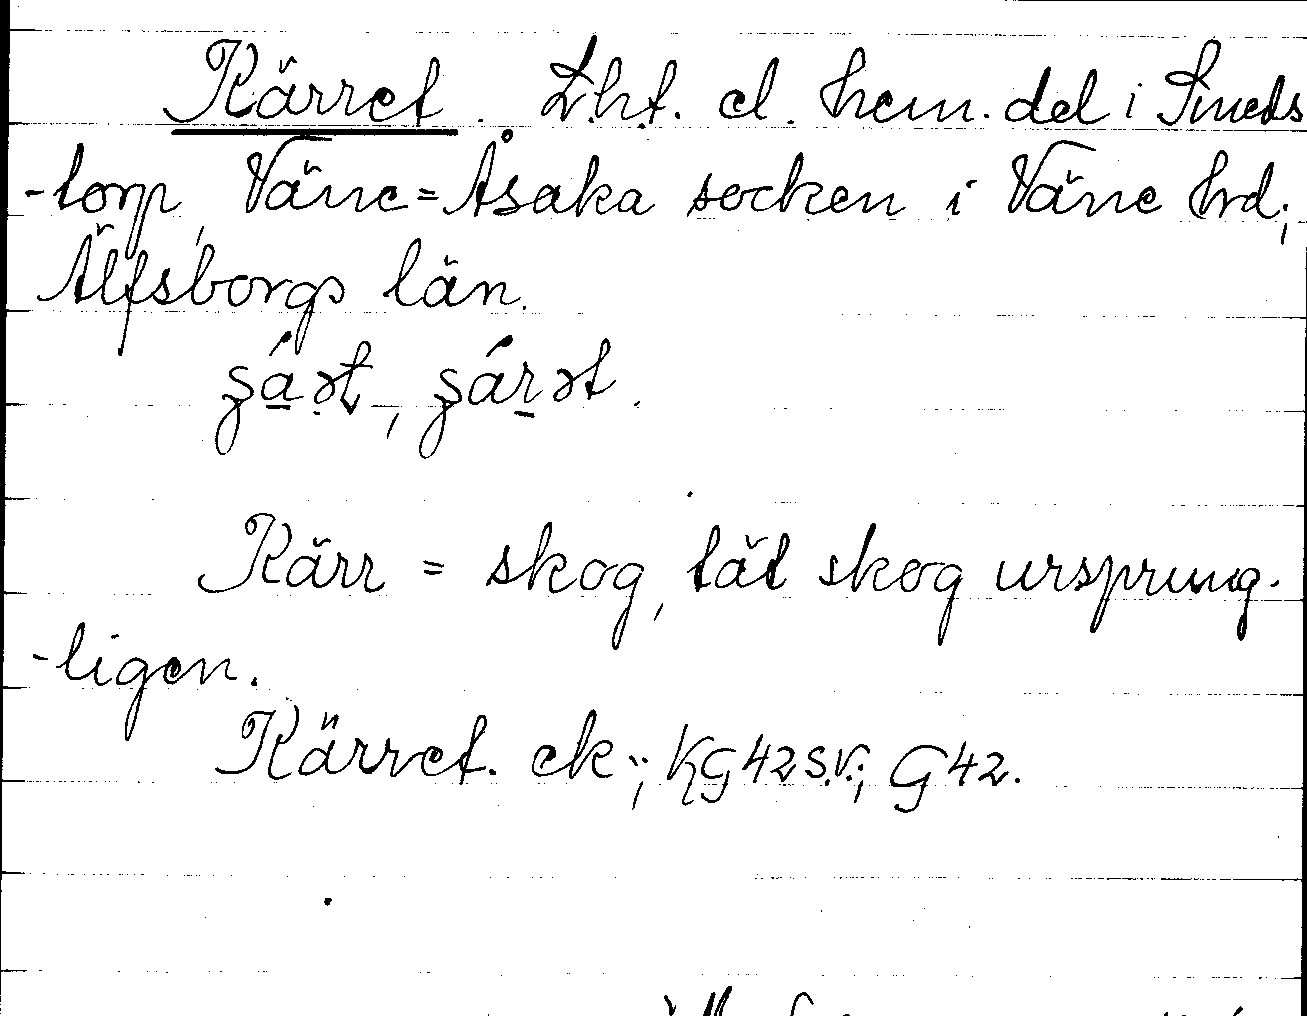 Kärret. Lht. el. hem. del i Smeds
-torp, Väne=Åsaka socken i Väne hrd;
Älfsborgs län.
Kärr = skog, tät skog ursprung-
-ligen.
Kärret. ek.; KG42S.V.; G42.